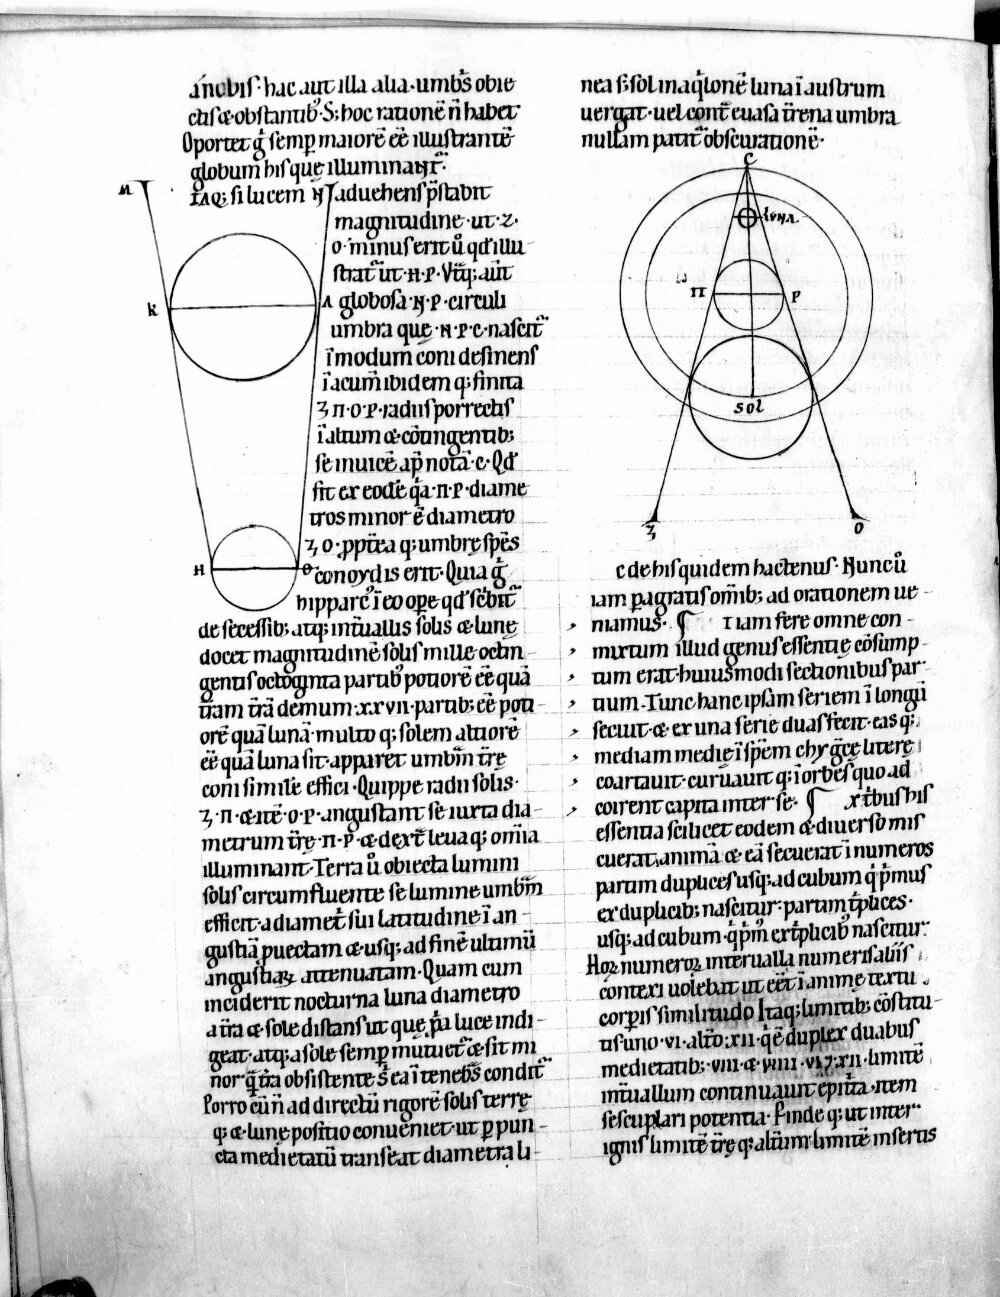 a nobis · hac aut illa alia · umbris obie
ctis & obstantib; S; hoc rationē n̄ habet
Oportet g° semp maiorē eē illustrantē
globum hisque illuminant̄r.
ITAQ; si lucem N T aduehens p̄stabit
magnitudine · ut · Z ·
O · minus erit ū qd illu
strat̄ ut · H · P · Vtq; aut̄
globosa · N · P · circuli
umbra que · N · P · C · nascit̄
ī modum coni desinens
ī acum̄ ibidem q; finita
Z Π · O · P · radiis porrectis
ī altum & cōtingentib;
se inuicē ap̄ notā · C · Qd
fit ex eodē qa · Π · P · diame
tros minor ē diametro
Z O · ppt̄ea q; umbrę spēs
conoydis erit · Quia g°
hipparc; ī eo ope qd sc̄bit̄
de secessib; atq; int̄uallis solis & lunę
docet magnitudinē solis mille octin
gentis octoginta partib; potiorē eē quā
t̄ram t̄rā demum · xxvii · partib; eē poti
orē quā lunā · multo q; solem altiorē
eē quā luna sit · apparet umbm̄ t̄rę
coni simile effici · Quippe radii solis ·
Z · Π · & itē · O · P · angustant se iuxta dia-
metrum t̄rę · Π · P · & dext̄ leua q; om̄ia
illuminant · Terra ū obiecta lumini
solis circumfluente se lumine umbm̄
efficit · a diamet̄ sui latitudine ī an-
gustiā puectam & usq; ad finē ultimū
angustiaꝝ attenuatam · Quam cum
inciderit nocturna luna diametro
a t̄ra & sole distans ut que p̄a luce indi-
geat · atq; a sole semp mutuet̄ & fit mi
nor q̄ t̄ra obsistente s̄ eā ī tenebs̄ condit̄
Porro cū n̄ ad directū rigorē solis terrę
q; & lunę positio conueniet · ut p pun-
cta medietatū transeat diametra li-
M
K
Λ
H
O
nea s; sol in aq̄lonē luna ī austrum
uergat · uel cont̄ euasa t̄rena umbra
nullam patit̄ obscurationē ·
C
LUNA
Π
P
SOL
Z
O
c de his quidem hactenus · Nunc ū
iam pagratis om̄ib; ad orationem ue-
niamus · ¶ Iam fere omne con-
mixtum illud genus essentię cōsump-
tum erat · huiusmodi sectionibus par-
tium · Tunc hanc ipsam seriem ī longū
secuit · & ex una serie duas fecit · eas q;
mediam medię ī spēm chy gr̄cę litterę
coartauit · curuauit q; ī orbes quo ad
coirent capita inter se · ¶ Ex trib; his
essentia scilicet eodem & diuerso mis
cuerat animā & eā secuerat ī numeros
partim duplices usq; ad cubum q̄ p̄mus
ex duplicib; nascitur: partim t̄plices ·
usq; ad cubum · q̄ p̄m; ex t̄plicib; nascitur:
Hoꝝ numeroꝝ interualla numeris aliis
contexi uolebat ut eēt ī animę textu
corpis similitudo Itaq; limitib; cōstitu-
tis uno · VI · alt̄o · XII · q̄ ē duplex duabus
medietatib; · VIII · & VIIII · VI · 7 · XII · limitē
int̄uallum continuauit epit̄ta · item
sescuplari potentia · Pinde q; ut inter ·
ignis limitē t̄rę q; alt̄im limitē insertis